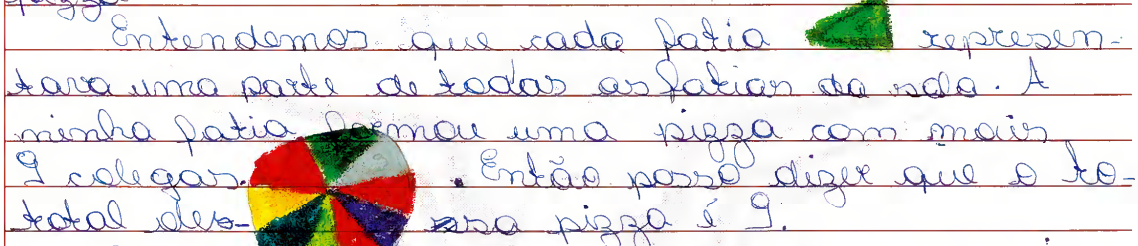 pizza.
Entendemos que cada fatia represen-
tava uma parte de todas as fatias da sala. A
minha fatia formou uma pizza com mais
9 colegas. . Então posso dizer que o to-
total des- ssa pizza é 9.